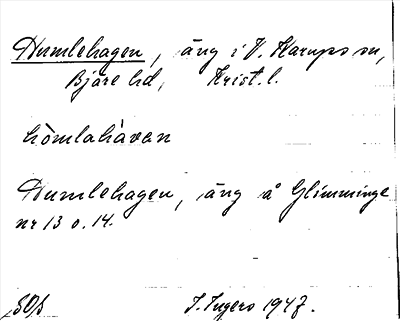 Humlehagen, äng i V. Karups sn,
Bjäre hd, Krist. l.
hòmlahàvan
Humlehagen, äng å Glimminge
nr 13 o. 14.
J. Ingers 1947.